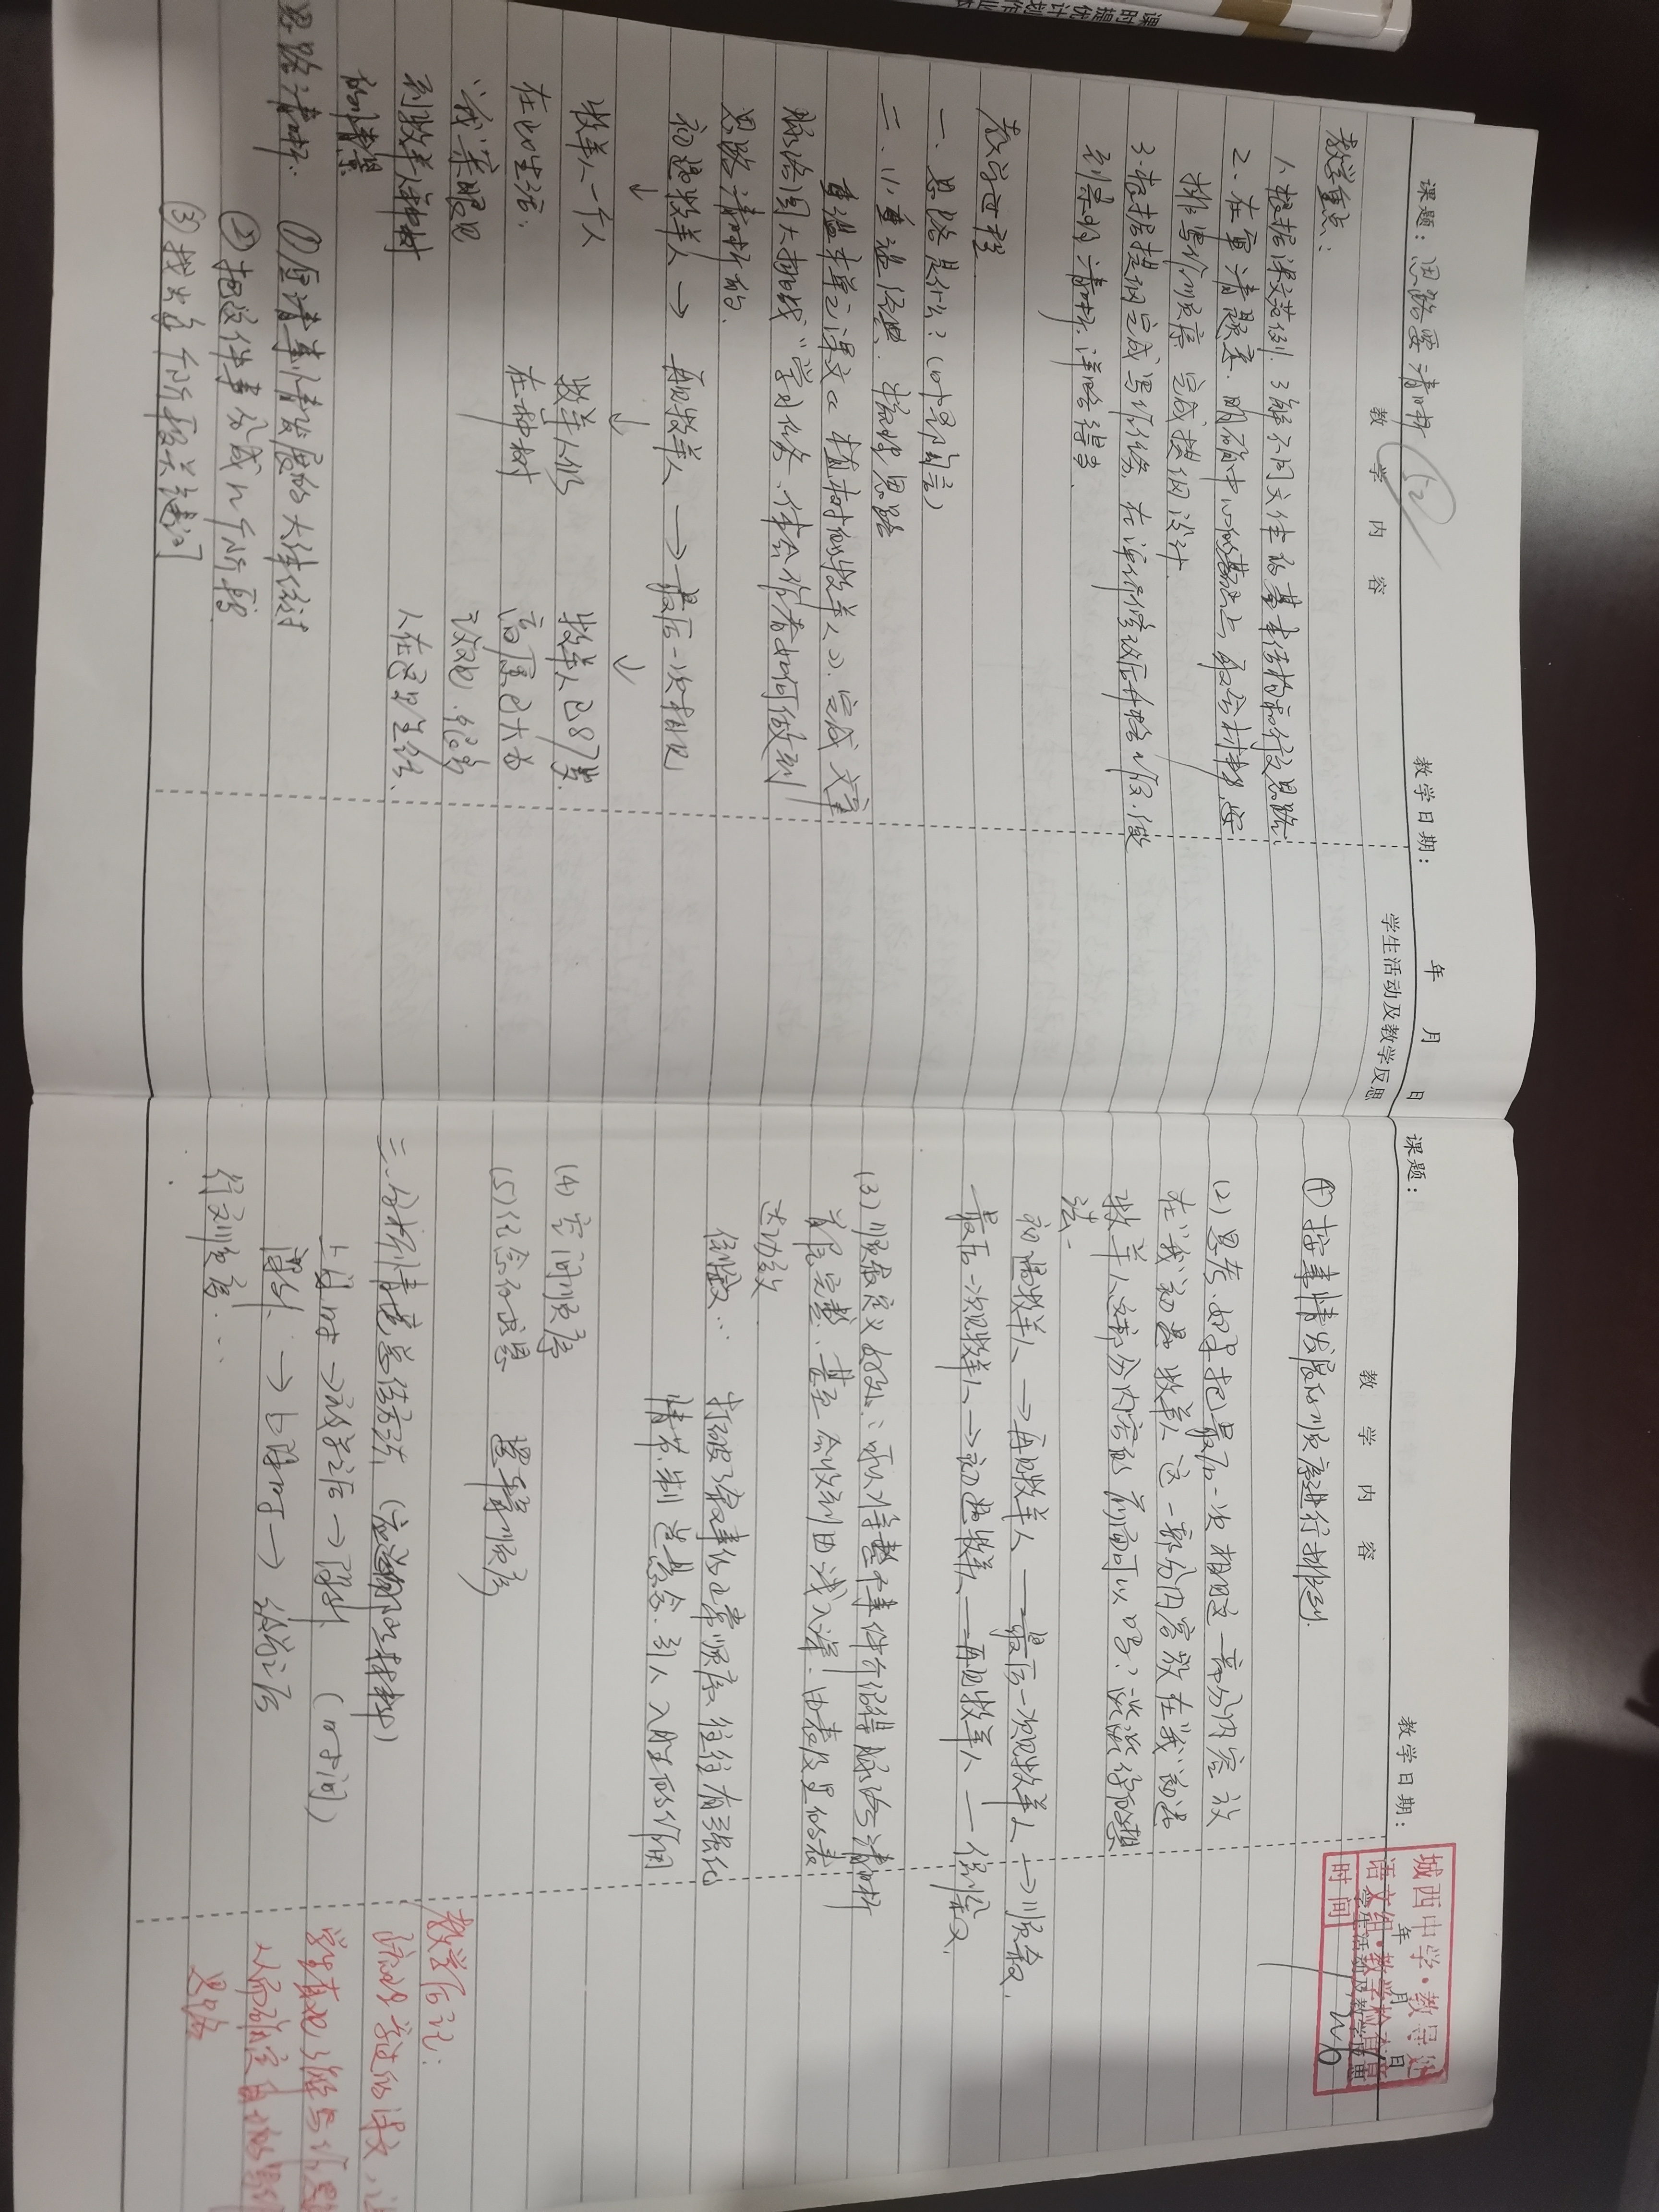 课题：思路要清晰 52
教学日期： 年 月 日
教学内容
学生活动及教学反思
教学重点：
1、根据课文范例，了解不同文体的基本结构和行文思路.
2、在审清题意、明确中心的基础上,取舍材料,安
排写作顺序,完成提纲设计.
3、根据提纲完成写作任务,在评价修改后升格作文,做
到条理清晰、详略得当.
教学过程
一、思路是什么？（叶圣陶言）
二、(1)重温经典,梳理思路
重温本单元课文《植树的牧羊人》,完成文章
脉络图大挑战”学习任务、体会作者如何做到
思路清晰的.
初遇牧羊人→ 再见牧羊人 →最后一次相见
↓ ↓ ↓
牧羊人一个人 牧羊人仍 牧羊人已87岁.
在此生活, 在种树 高原已大为
“我”亲眼见 改观,很多
到牧羊人种树 人在这里生活、
的情景
思路清晰: ①厘清事情发展的大体经过
②把这件事分成几个阶段
③找出各个阶段关键词
课题：
教学日期： 年 月 日
城西中学·教导处
语文组·教学检查章
时间
教学内容
学生活动及教学反思
④按事情发展的顺序进行排列.
(2)思考、如果把最后一次相见这一部分内容放
在“我”初遇牧羊人这一部分内容放在“我”初遇
牧羊人这部分内容的前面可以吗？谈谈你的想
法.
初遇牧羊人→再见牧羊人→最后一次见牧羊人→顺叙.
最后一次见牧羊人→初遇牧羊人—再见牧羊人—倒叙.
(3)顺叙定义好处：可以将整个事件介绍得脉络清晰
首尾完整、甚至会收到由浅入深、由表及里的表
达功效
倒叙… 打破了叙事的正常顺序,往往有强化
情节、制造悬念、引人入胜的作用
(4)空间顺序
(5)纪念白求恩 逻辑顺序
三、分析情境总结方法,（应选哪些材料）
上课时→放学之后→课外 （时间）
课外→上课时→放学之后
行文顺序…
教学后记:
梳理学过的课文,让
学生直观了解写作思
从而确定自己的写作
思路
课时提优计划作业本